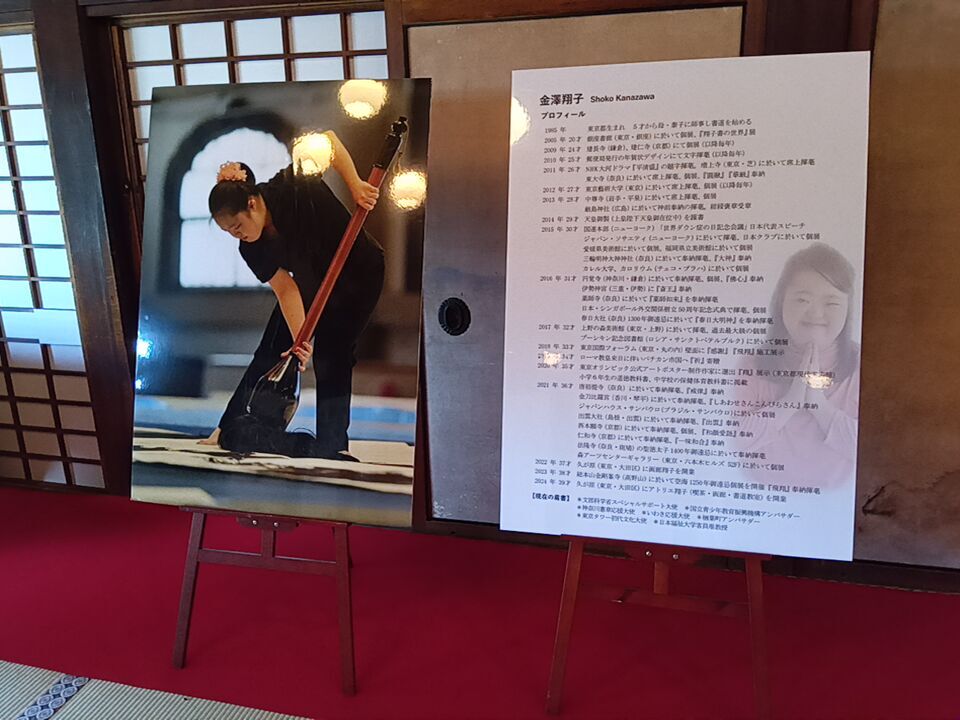 金澤翔子 Shoko Kanazawa
プロフィール
1985 年 東京都生まれ 5才から母・泰子に師事し書道を始める
2005 年 20才 銀座書廊（東京・銀座）に於いて個展、『翔子書の世界』展
2009 年 24才 建長寺（鎌倉）、建仁寺（京都）にて個展（以降毎年）
2010 年 25才 郵便局発行の年賀状デザインにて文字揮毫（以降毎年）
2011 年 26才 NHK大河ドラマ『平清盛』の題字揮毫、増上寺（東京・芝）に於いて席上揮毫
東大寺（奈良）に於いて席上揮毫、個展、『華厳』奉納
2012 年 27才 東京藝術大学（東京）に於いて席上揮毫、個展（以降毎年）
2013 年 28才 中尊寺（岩手・平泉）に於いて席上揮毫、個展
厳島神社（広島）に於いて神前奉納の揮毫、紺綬褒章受章
2014 年 29才 天皇御製（上皇陛下天皇御在位中）を謹書
2015 年 30才 国連本部（ニューヨーク）「世界ダウン症の日記念会議」日本代表スピーチ
ジャパン・ソサエティ（ニューヨーク）に於いて揮毫、日本クラブにて個展
愛媛県美術館に於いて個展、福岡県立美術館に於いて個展
三輪明神大神神社（奈良）に於いて奉納揮毫、『大神』奉納
カレル大学、カロリウム（チェコ・プラハ）に於いて個展
2016 年 31才 円覚寺（神奈川・鎌倉）に於いて奉納揮毫、個展、『佛心』奉納
伊勢神宮（三重・伊勢）に『斎王』奉納
薬師寺（奈良）に於いて『薬師如来』を奉納揮毫
日本・シンガポール外交関係樹立50周年記念式典で揮毫、個展
春日大社（奈良）1300年御遠忌に於いて『春日大明神』を奉納揮毫
2017 年 32才 上野の森美術館（東京・上野）に於いて揮毫、過去最大級の個展
プーシキン記念図書館（ロシア・サンクトペテルブルク）に於いて個展
2018 年 33才 東京国際フォーラム（東京・丸の内）壁面に『感謝』『飛翔』施工展示
34才 ローマ教皇来日に伴いバチカン市国へ『祈』寄贈
2020 年 35才 東京オリンピック公式アートポスター制作作家に選出『翔』展示（東京都現代美術館）
小学6年生の道徳教科書、中学校の保健体育教科書に掲載
2021 年 36才 唐招提寺（奈良）に於いて奉納揮毫、『戒律』奉納
金刀比羅宮（香川・琴平）に於いて奉納揮毫、『しあわせさんこんぴらさん』奉納
ジャパンハウス・サンパウロ（ブラジル・サンパウロ）に於いて個展
出雲大社（島根・出雲）に於いて奉納揮毫、『出雲』奉納
西本願寺（京都）に於いて奉納揮毫、個展、『和顔愛語』奉納
仁和寺（京都）に於いて奉納揮毫、『一味和合』奉納
法隆寺（奈良・斑鳩）の聖徳太子1400年御遠忌に於いて奉納揮毫
森アーツセンターギャラリー（東京・六本木ヒルズ 52F）に於いて個展
2022 年 37才 久が原（東京・大田区）に画廊翔子を開業
2023 年 38才 総本山金剛峯寺（高野山）に於いて空海1250年御遠忌個展を開催『飛翔』奉納揮毫
2024 年 39才 久が原（東京・大田区）にアトリエ翔子（喫茶・画廊・書道教室）を開業
【現在の肩書】 ＊文部科学省スペシャルサポート大使 ＊国立青少年教育振興機構アンバサダー
＊神奈川憲章応援大使 ＊いわき応援大使 ＊楢葉町アンバサダー
＊東京タワー初代文化大使 ＊日本福祉大学客員准教授